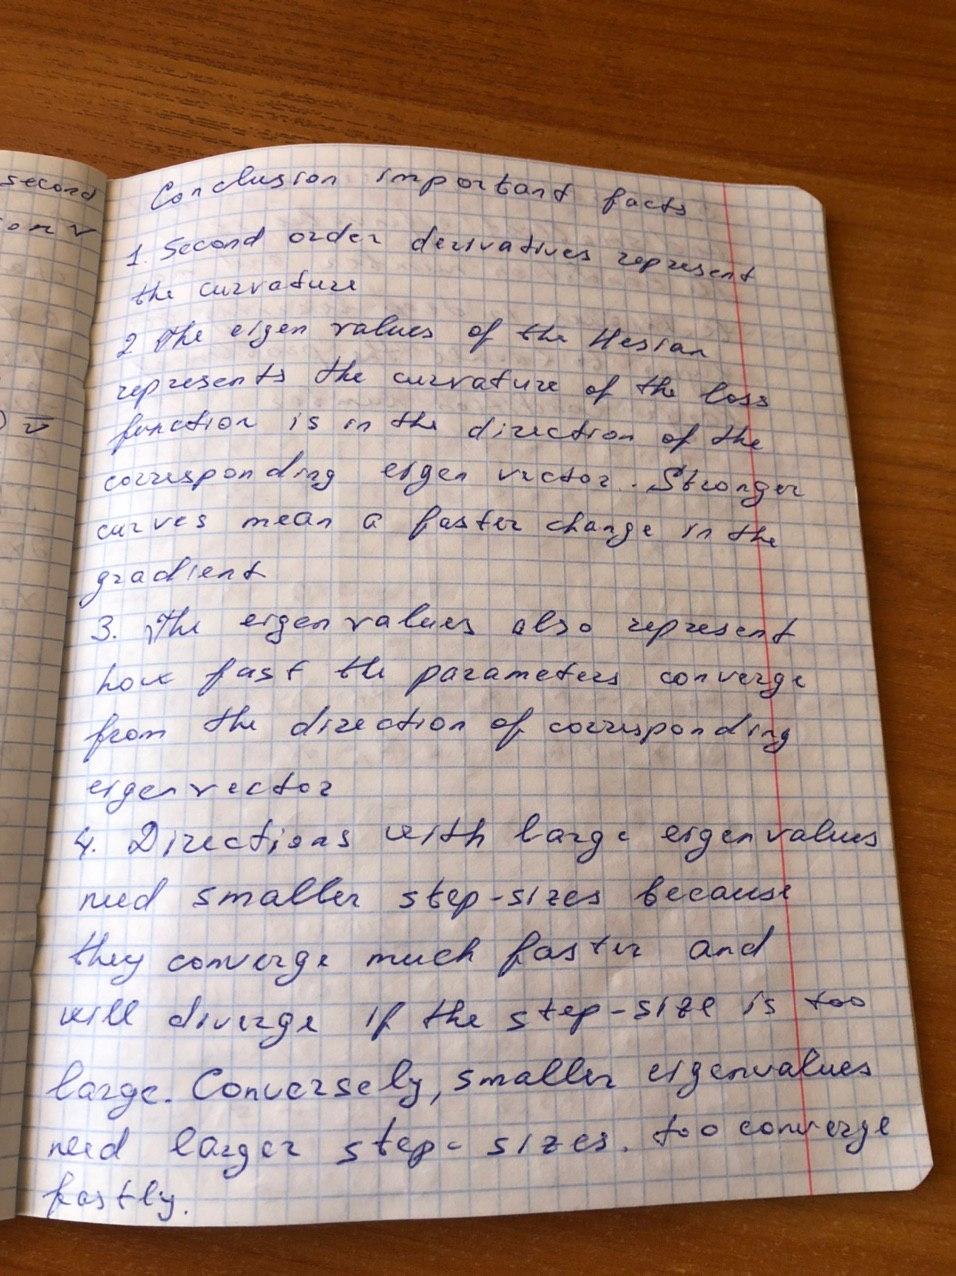 second
Conclusion important facts
1. Second order derivatives represent
the curvature
2 The eigen values of the Hesian
represents the curvature of the loss
function is in the direction of the
corresponding eigen vector. Stronger
curves mean a faster change in the
gradient
3. The eigenvalues also represent
how fast the parameters converge
from the direction of corresponding
eigenvector
4. Directions with large eigenvalues
need smaller step-sizes because
they converge much faster and
will diverge if the step-size is too
large. Conversely, smaller eigenvalues
need larger step-sizes. too converge
fastly.